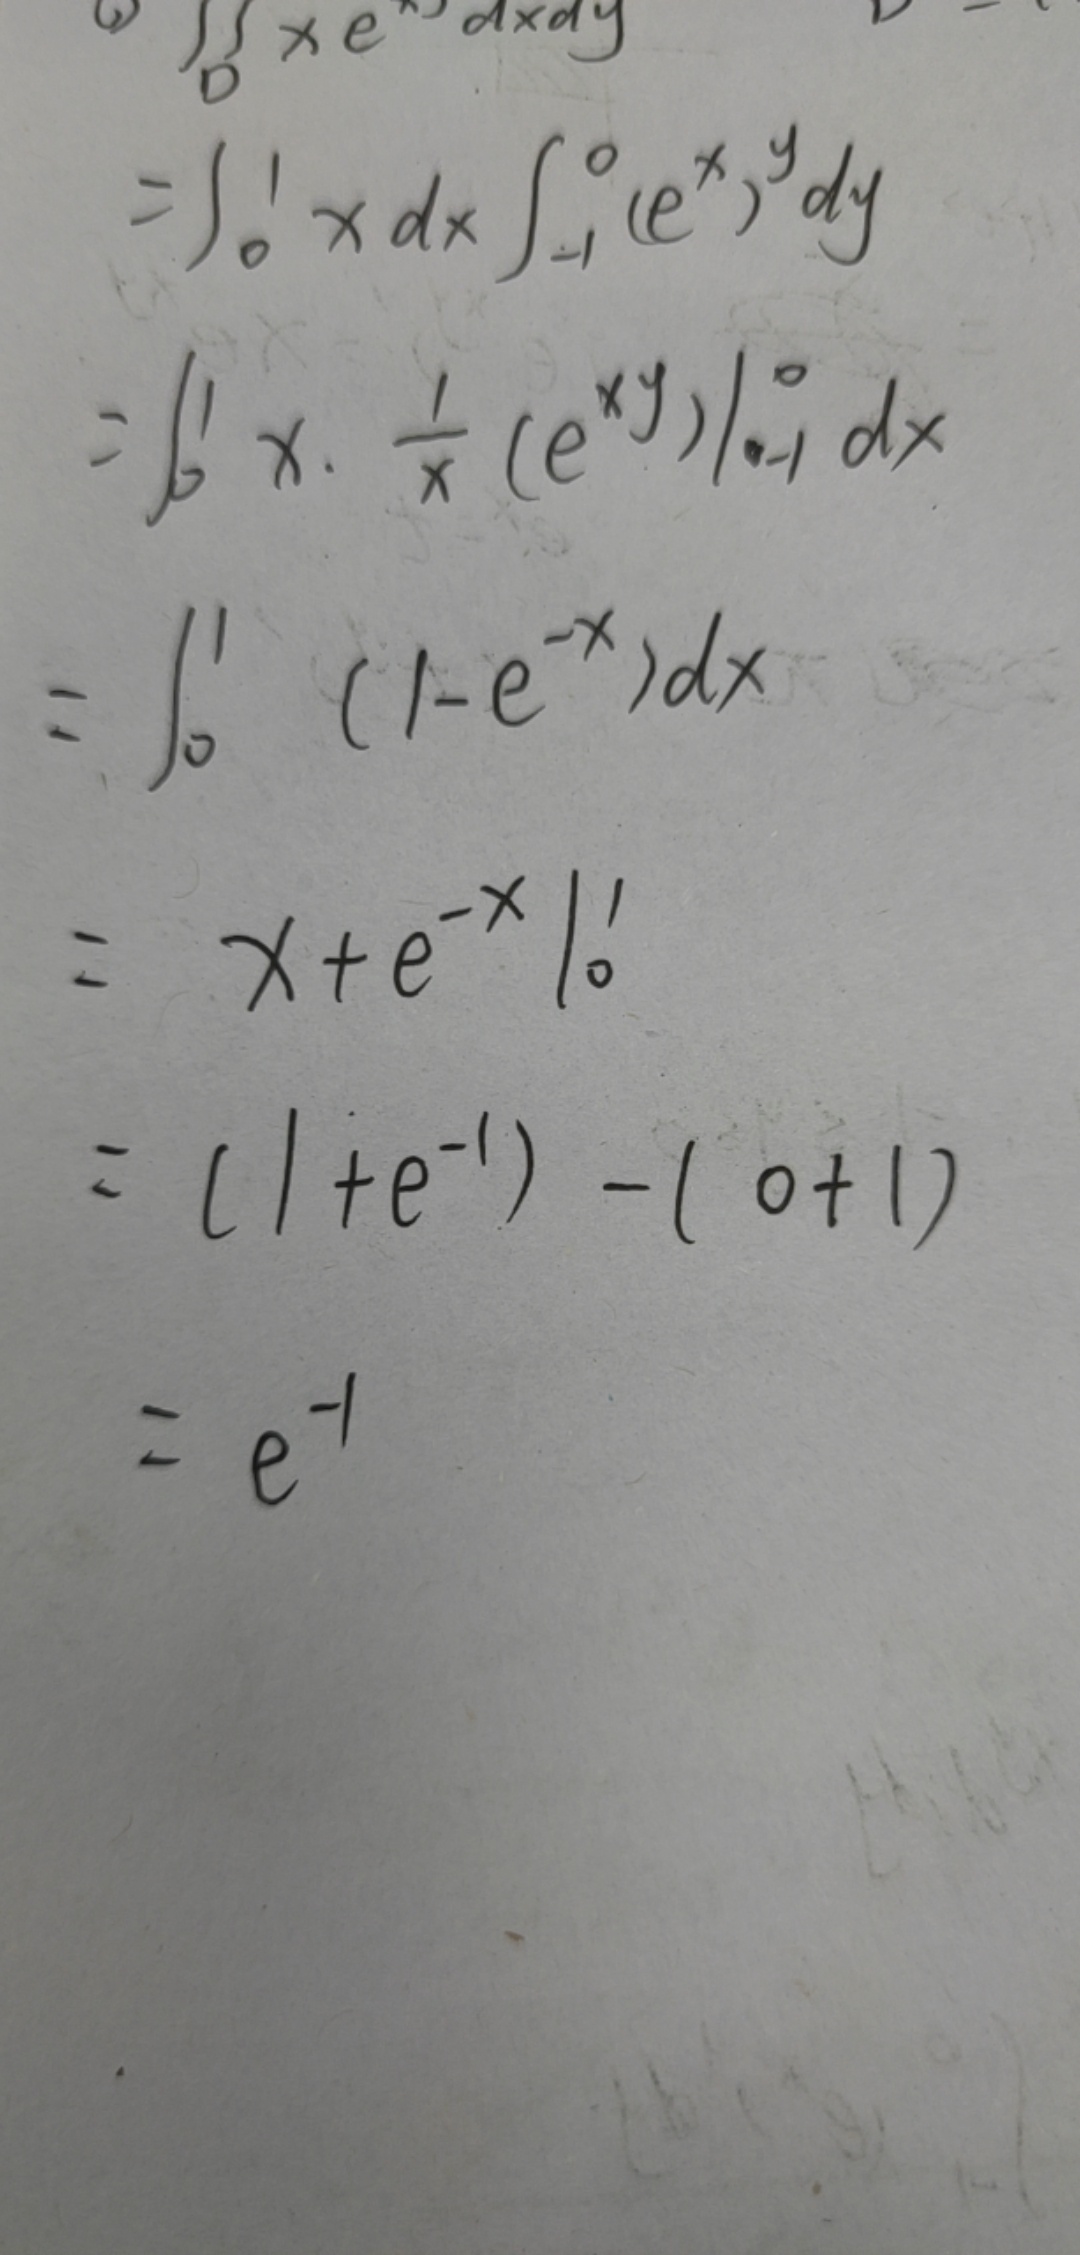 ∬_D x e^{xy} dxdy D =
= ∫_0^1 x dx ∫_{-1}^0 (e^x)^y dy
= ∫_0^1 x · 1/x (e^{xy}) |_{-1}^0 dx
= ∫_0^1 (1-e^{-x}) dx
= x+e^{-x} |_0^1
= (1+e^{-1}) - (0+1)
= e^{-1}